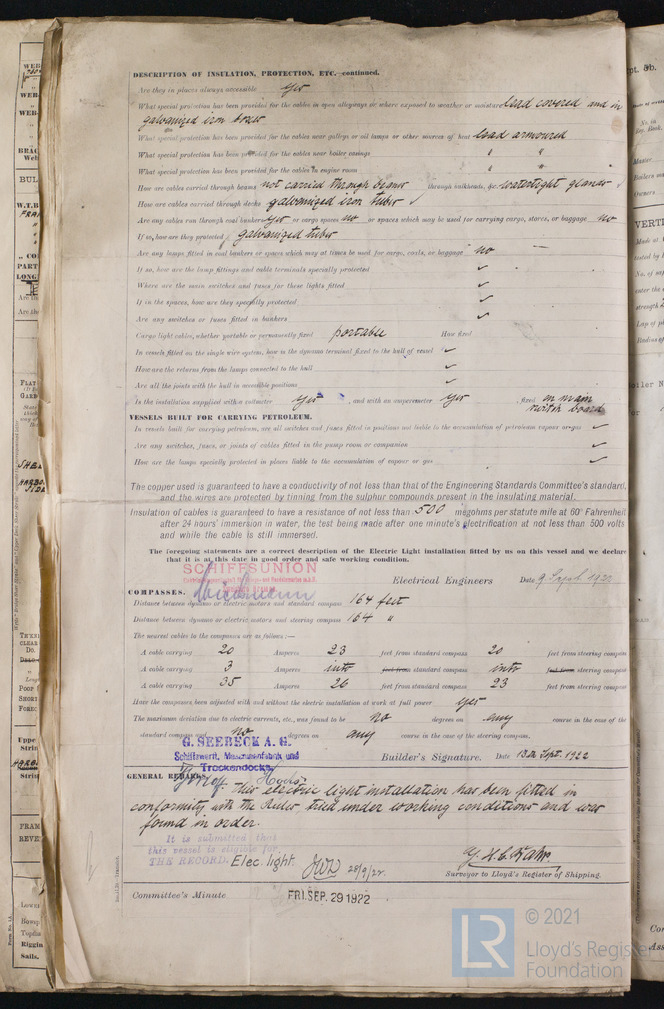 DESCRIPTION OF INSULATION, PROTECTION, ETC.—continued.
Are they in places always accessible yes
What special protection has been provided for the cables in open alleyways or where exposed to weather or moisture lead covered and in
galvanized iron boxes
What special protection has been provided for the cables near galleys or oil lamps or other sources of heat lead armoured
What special protection has been provided for the cables near boiler casings " "
What special protection has been provided for the cables in engine room " "
How are cables carried through beams not carried through beams through bulkheads, &c. watertight glands ✓
How are cables carried through decks galvanized iron tubes ✓
Are any cables run through coal bunkers yes or cargo spaces no or spaces which may be used for carrying cargo, stores, or baggage no
If so, how are they protected galvanized tubes
Are any lamps fitted in coal bunkers or spaces which may at times be used for cargo, coals, or baggage no —
If so, how are the lamp fittings and cable terminals specially protected ✓
Where are the main switches and fuses for these lights fitted ✓
If in the spaces, how are they specially protected ✓
Are any switches or fuses fitted in bunkers ✓
Cargo light cables, whether portable or permanently fixed portable How fixed
In vessels fitted on the single wire system, how is the dynamo terminal fixed to the hull of vessel ✓
How are the returns from the lamps connected to the hull ✓
Are all the joints with the hull in accessible positions ✓
Is the installation supplied with a voltmeter yes , and with an amperemeter yes fixed on main
switch board
VESSELS BUILT FOR CARRYING PETROLEUM.
In vessels built for carrying petroleum, are all switches and fuses fitted in positions not liable to the accumulation of petroleum vapour or gas ✓
Are any switches, fuses, or joints of cables fitted in the pump room or companion ✓
How are the lamps specially protected in places liable to the accumulation of vapour or gas ✓
The copper used is guaranteed to have a conductivity of not less than that of the Engineering Standards Committee's standard,
and the wires are protected by tinning from the sulphur compounds present in the insulating material.
Insulation of cables is guaranteed to have a resistance of not less than 500 megohms per statute mile at 60° Fahrenheit
after 24 hours' immersion in water, the test being made after one minute's electrification at not less than 500 volts
and while the cable is still immersed.
The foregoing statements are a correct description of the Electric Light installation fitted by us on this vessel and we declare
that it is at this date in good order and safe working condition.
SCHIFFSUNION
Electrical Engineers Date 9 Sept. 1922
COMPASSES.
Distance between dynamo or electric motors and standard compass 164 feet
Distance between dynamo or electric motors and steering compass 164 "
The nearest cables to the compasses are as follows:—
A cable carrying 20 Amperes 23 feet from standard compass 20 feet from steering compass
A cable carrying 3 Amperes into feet from standard compass into feet from steering compass
A cable carrying 35 Amperes 26 feet from standard compass 23 feet from steering compass
Have the compasses been adjusted with and without the electric installation at work at full power yes
The maximum deviation due to electric currents, etc., was found to be no degrees on any course in the case of the
standard compass and no degrees on any course in the case of the steering compass.
G. SEEBECK A. G.
Schiffswerft, Maschinenfabrik und
Trockendocks
Builder's Signature. Date 13th Sept. 1922
GENERAL REMARKS.
This electric light installation has been fitted in
conformity with the Rules, tried under working conditions and was
found in order.
It is submitted that
this vessel is eligible for
THE RECORD. Elec. light. 28/9/22.
Surveyor to Lloyd's Register of Shipping.
Committee's Minute FRI. SEP. 29 1922
© 2021
Lloyd's Register
Foundation